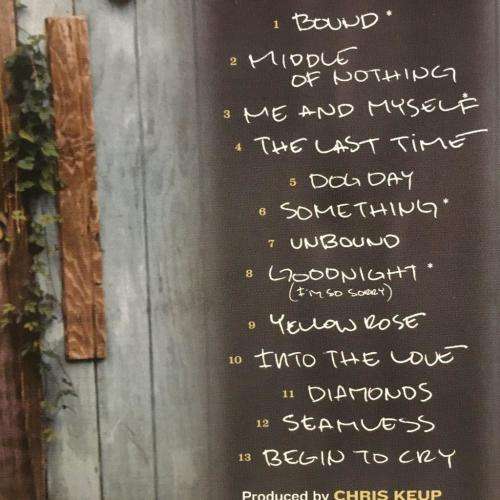 1 BOUND *
2 MIDDLE
OF NOTHING
3 ME AND MYSELF *
4 THE LAST TIME
5 DOG DAY
6 SOMETHING *
7 UNBOUND
8 GOODNIGHT *
(I'M SO SORRY)
9 YELLOW ROSE
10 INTO THE LOVE
11 DIAMONDS
12 SEAMLESS
13 BEGIN TO CRY
Produced by CHRIS KEUP